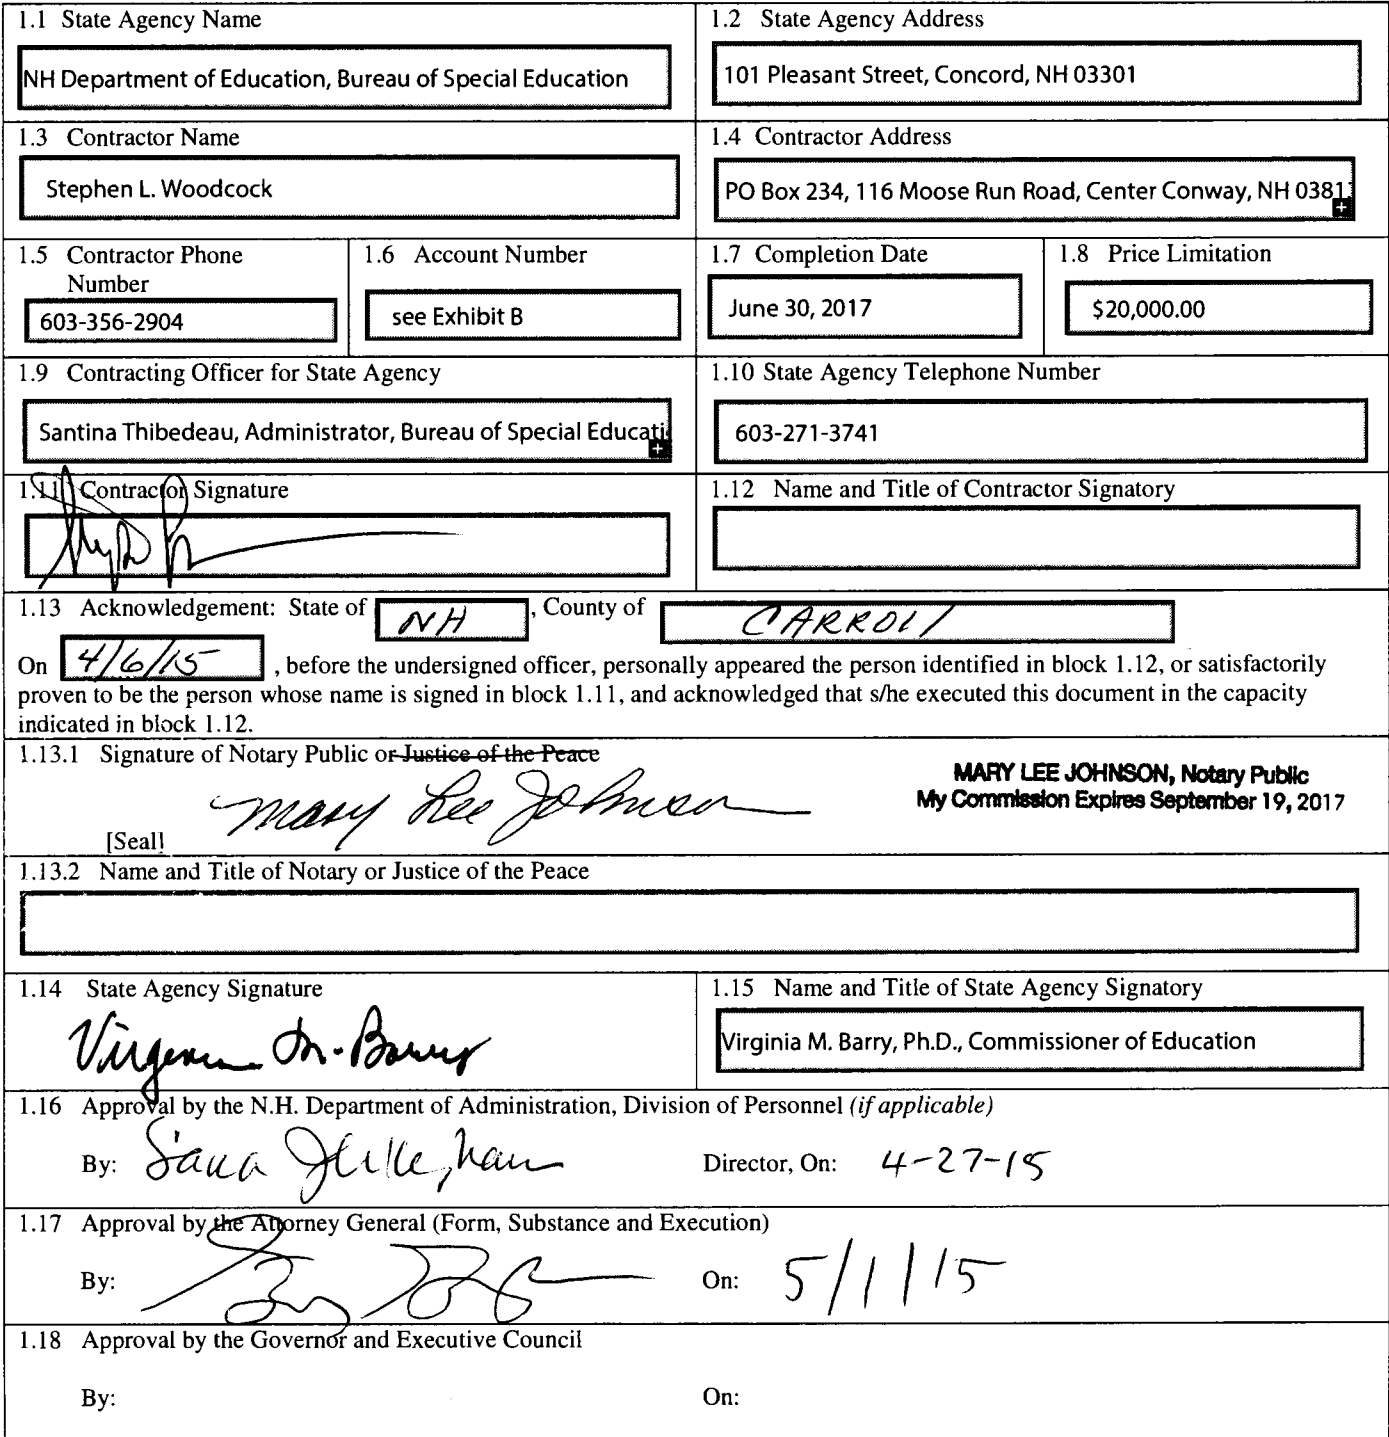 1.1 State Agency Name
NH Department of Education, Bureau of Special Education
1.2 State Agency Address
101 Pleasant Street, Concord, NH 03301
1.3 Contractor Name
Stephen L. Woodcock
1.4 Contractor Address
PO Box 234, 116 Moose Run Road, Center Conway, NH 0381
1.5 Contractor Phone
Number
603-356-2904
1.6 Account Number
see Exhibit B
1.7 Completion Date
June 30, 2017
1.8 Price Limitation
$20,000.00
1.9 Contracting Officer for State Agency
Santina Thibedeau, Administrator, Bureau of Special Educati
1.10 State Agency Telephone Number
603-271-3741
1.11 Contractor Signature
1.12 Name and Title of Contractor Signatory
1.13 Acknowledgement: State of NH, County of CARROll
On 4/6/15, before the undersigned officer, personally appeared the person identified in block 1.12, or satisfactorily
proven to be the person whose name is signed in block 1.11, and acknowledged that s/he executed this document in the capacity
indicated in block 1.12.
1.13.1 Signature of Notary Public or Justice of the Peace
Mary Lee Johnson
MARY LEE JOHNSON, Notary Public
My Commission Expires September 19, 2017
[Seal]
1.13.2 Name and Title of Notary or Justice of the Peace
1.14 State Agency Signature
Virginia M. Barry
1.15 Name and Title of State Agency Signatory
Virginia M. Barry, Ph.D., Commissioner of Education
1.16 Approval by the N.H. Department of Administration, Division of Personnel (if applicable)
By: Director, On: 4-27-15
1.17 Approval by the Attorney General (Form, Substance and Execution)
By: On: 5/1/15
1.18 Approval by the Governor and Executive Council
By: On: